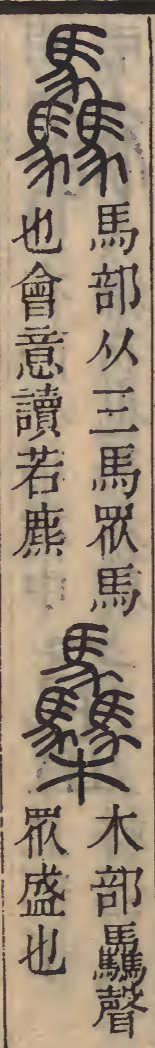 驫
馬部从三馬眾馬
也會意讀若麃
木部驫聲
眾盛也